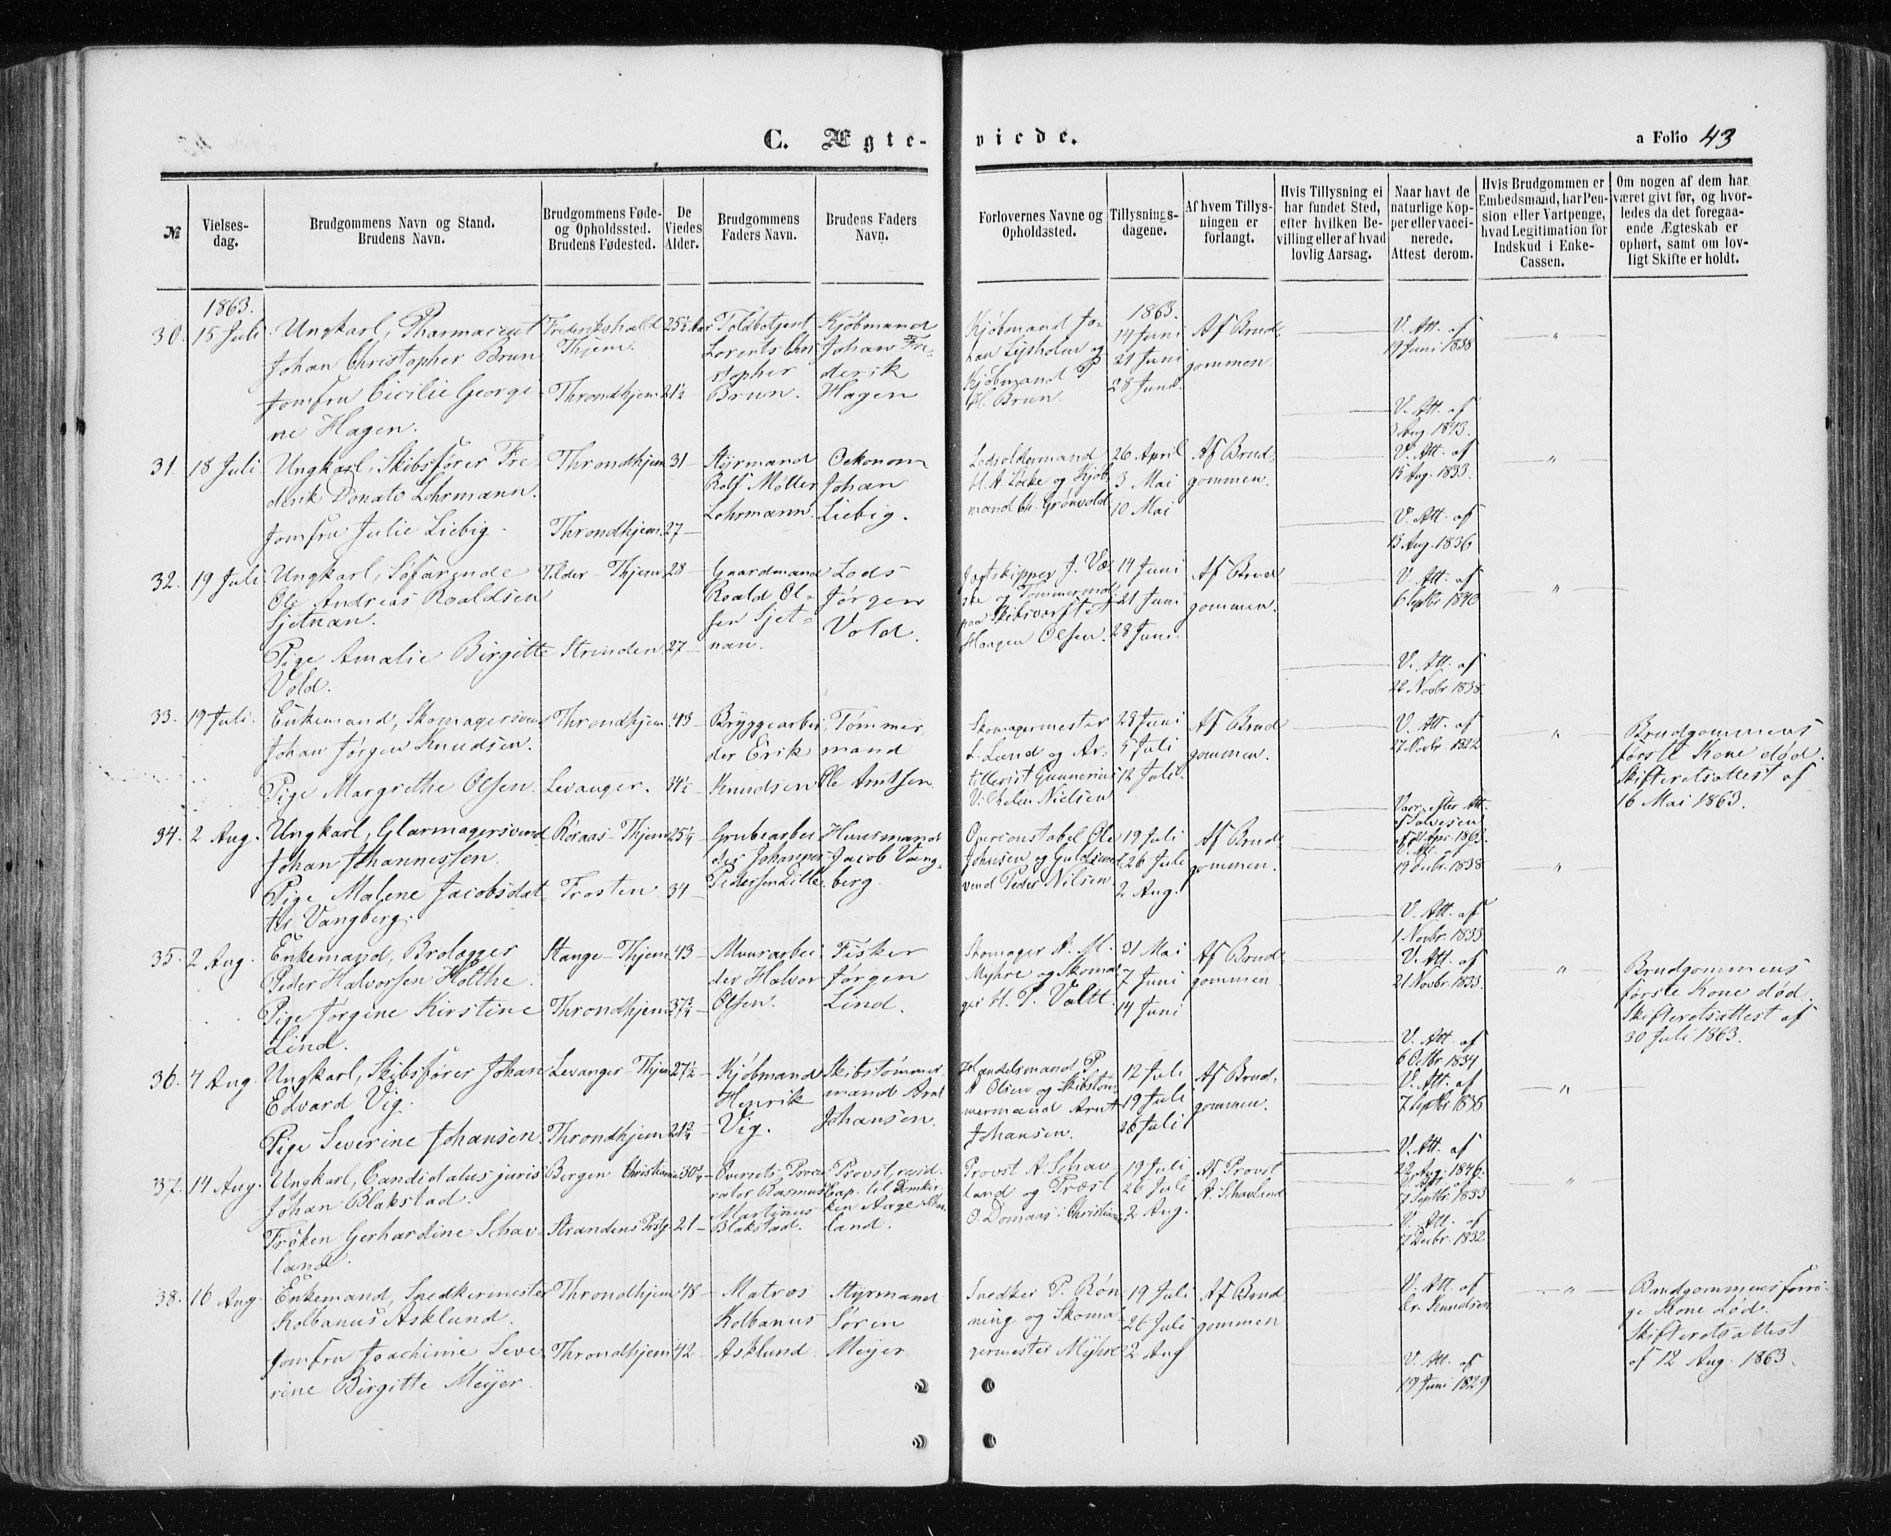 C. Ægte-
viede.
a Folio 43
№
Vielses-
dag.
Brudgommens Navn og Stand.
Brudens Navn.
Brudgommens Føde-
og Opholdssted.
Brudens Fødested.
De
Viedes
Alder.
Brudgommens
Faders Navn.
Brudens Faders
Navn.
Forlovernes Navne og
Opholdssted.
Tillysnings-
dagene.
Af hvem Tillys-
ningen er
forlangt.
Hvis Tillysning ei
har fundet Sted,
efter hvilken Be-
villing eller af hvad
lovlig Aarsag.
Naar havt de
naturlige Kop-
per eller vacci-
nerede.
Attest derom.
Hvis Brudgommen er
Embedsmand, har Pen-
sion eller Vartpenge,
hvad Legitimation for
Indskud i Enke-
Cassen.
Om nogen af dem har
været givt før, og hvor-
ledes da det foregaa-
ende Ægteskab er
ophørt, samt om lov-
ligt Skifte er holdt.
1863.
30. 15 Juli
Ungkarl, Pharmaceut
Johan Christopher Brun
Jomfru Cicilie Georgi-
ne Hagen.
Frederikshald
Thjem.
Throndhjem
25½ Aar
21½
Toldbetjent
Lorents Chri
stopher
Brun.
Kjøbmand
Johan Fre-
derik
Hagen
Kjøbmand Jo-
han Lysholm og
Kjøbmand P
H. Brun.
1863.
14 Juni
21 Juni
28 Juni
Af Brud-
gommen
V. Att. af
19 Juni 1838
V. Att. af
3 Aug 1843.
31. 18 Juli
Ungkarl, Skibsfører Fre-
derik Donato Lohrmann.
Jomfru Julie Liebig.
Throndhjem
Throndhjem.
31
27
Styrmand
Rolf Møller
Lohrmann.
Oekonom
Johan
Liebig.
Lodsoldermand
H. A Løcke og Kjøb-
mand Ch. Grønvold
26 April
3 Mai
10 Mai
Af Brud-
gommen.
V. Att. af
15 Aug. 1833.
V. Att. af
13 Aug. 1836
32. 19 Juli
Ungkarl, Søfarende
Ole Andreas Roaldsen
Sjetnan.
Pige Amalie Birgitte
Vold.
Tilder - Thjem
Strinden
28
27
Gaardmand
Roald Ol-
sen Sjet-
nan.
Lods
Jørgen
Vold.
Jagtskipper J.
og Tømmermd.
paa Skibsværftet
Haagen Olsen.
14 Juni
21 Juni
28 Juni.
Af Brud
gommen.
V. Att. af
6 Septbr 1840
V. Att. af
22 Novbr 1838.
33. 19 Juli.
Enkemand, Skomagersvend
Johan Jørgen Knudsen.
Pige Margrethe Olsen.
Throndhjem
Levanger.
43
34½
Bryggearbei
der Erik
Knudsen
Tømmer-
mand
Ole Arntsen.
Skomagermester
L. Lund og Ar-
tillerist Gunnerius
Nielsen
28 Juni
5 Juli
12 Juli.
Af Brud
gommen.
V. Att. af
27 Novbr. 1822
Brudgommens
første Kone død.
Skifteretsattest af
16 Mai 1863.
34. 2 Aug.
Ungkarl, Glarmagersvend
Johan Johannessen.
Pige Malene Jacobsdat-
ter Vangberg.
Røraas - Thjem
Frosten
25¼
34
Grubearbei
der Johannes
Pedersen
Huusmand
Jacob Vang-
berg.
Overconstabel Ole
Johnsen og Guldsmed
svend Peder Nilsen.
19 Juli
26 Juli
2 Aug.
Af Brud
gommen.
19 Decbr. 1838
V. Att. af
1 Novbr. 1833
35. 2 Aug.
Enkemand, Brolægger
Peder Halvorsen Holthe.
Pige Jørgine Kirstine
Lind.
Stange - Thjem
Throndhjem
43
37¾
Muurarbei
der Halvor
Olsen.
Fisker
Jørgen
Lind.
Skomager A. M.
Myhre og Skoma-
ger H. P. Valtt.
31 Mai
7 Juni
14 Juni
Af Brud
gommen
V. Att. af
21 Novbr. 1833.
V. Att. af
6 Octbr. 1834
Brudgommens
første Kone død.
Skifteretsattest af
30 Juli 1863.
36. 7 Aug.
Ungkarl, Skibsfører Johan
Edvard Vig.
Pige Severine Johansen.
Levanger - Thjem
Throndhjem
27½
21¾
Kjøbmand
Henrik
Vig.
Skibstømmer
mand Arnt
Johansen.
Handelsmand P
A Olsen og Skibstøm-
mermand Arnt
Johansen.
12 Juli
19 Juli
26 Juli
Af Brud-
gommen.
V. Att. af
7 Septbr 1835
V. Att. af
22 Aug. 1846.
37. 14 Aug.
Ungkarl, Candidatus juris
Johan Blakstad.
Frøken Gerhardine Schav-
land.
Bergen Christiania
Strandens Prstg
30¼
21
Overrets Procu
rator Rasmus
Martinus
Blakstad.
Provst, resid.
Cap. til Domkir-
ken Aage Schav-
land.
Provst A Schav-
land og Præst
O. Domaas i Christiania
19 Juli
26 Juli
2 Aug.
Af Provst
A. Schavland
V. Att. af
7 Septbr 1833
V. Att. af
7 Decbr. 1832
38. 16 Aug.
Enkemand, Snedkermester
Kolbanus Asklund.
Jomfru Joachime Seve-
rine Birgitte Meyer.
Throndhjem
Throndhjem
48
42
Matros
Kolbanus
Asklund
Styrmand
Søren
Meyer
Snedker P. Røn
ning og Skoma-
germester Myhre
19 Juli
26 Juli
2 Aug.
Af Brud
gommen
V. Att. af
Dr. Knudsen
V. Att. af
19 Juni 1829
Brudgommens forri-
ge Kone død.
Skifteretsattest
af 12 Aug. 1863.